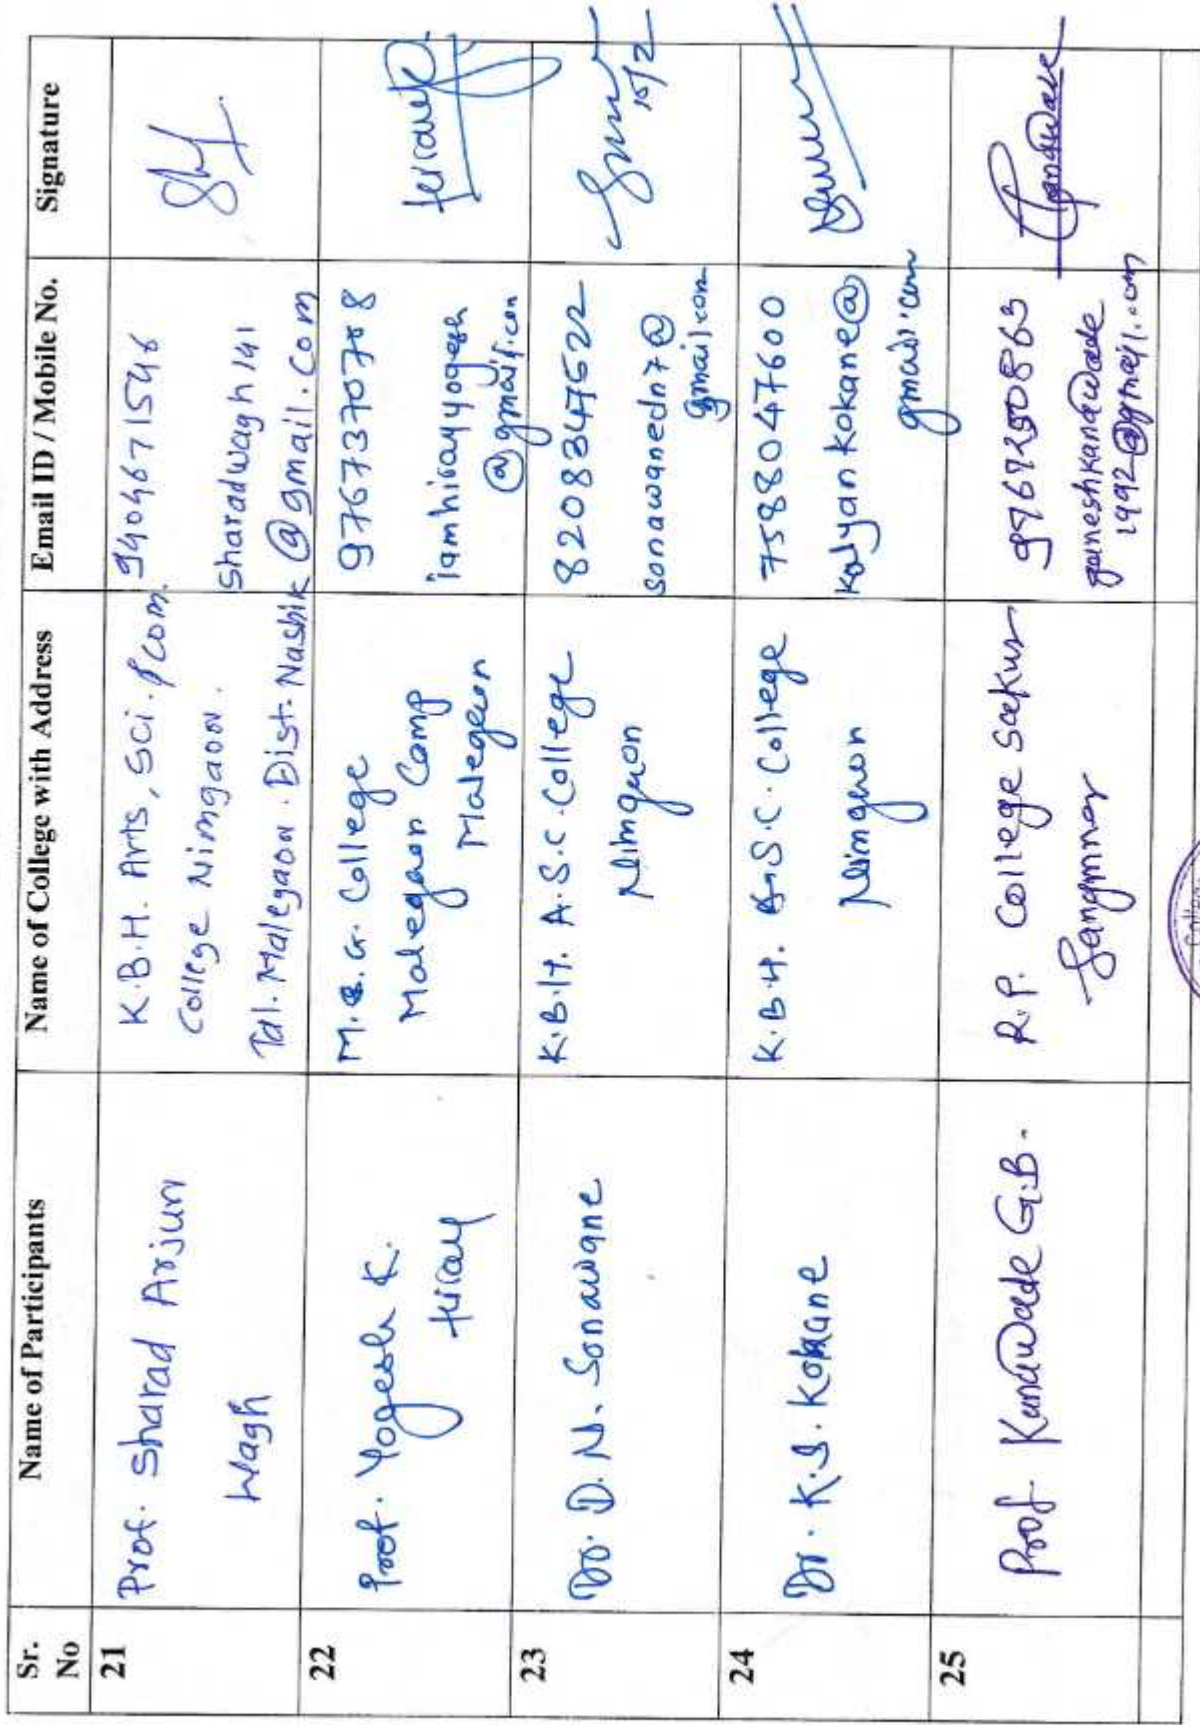 Sr. No
Name of Participants
Name of College with Address
Email ID / Mobile No.
Signature
21
Prof. Sharad Arjun
Wagh
K.B.H. Arts, Sci. & Com.
College Nimgaon.
Tal. Malegaon. Dist. Nashik
9404671546
sharadwagh141
@gmail.com
22
Prof. Yogesh K.
Hiray
M.S.G. College
Malegaon Camp
Malegaon
9767370708
iamhirayyogesh
@gmail.com
Hirayyk
23
Dr. D. N. Sonawane
K.B.H. A.S.C. College
Nimgaon
8208347522
sonawanedn7@
gmail.com
15/2
24
Dr. K.S. Kokane
K.B.H. A.S.C. College
Nimgaon
7588047600
kalyankokane@
gmail.com
25
Prof. Kanawade G.B.
R.P. College Sakur
Sangmner
ganeshkanawade
1992@gmail.com
Kanawade
College